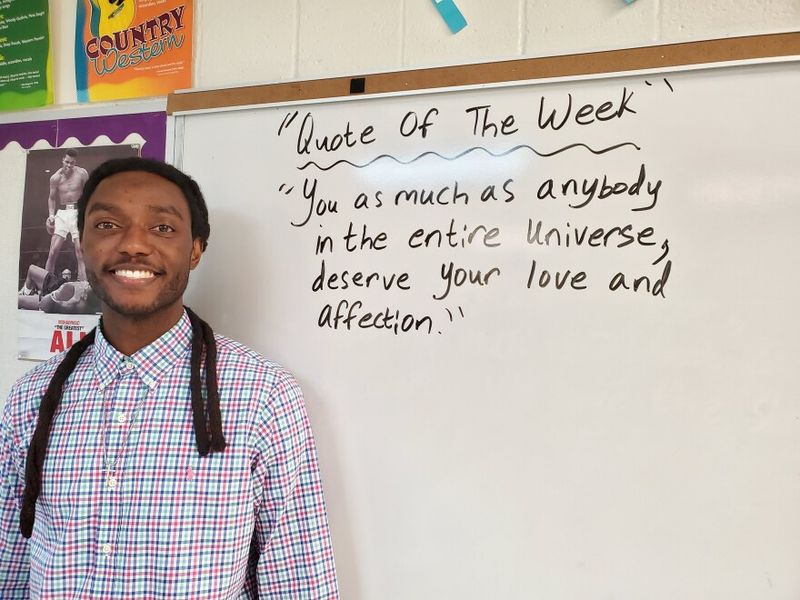 COUNTRY
Western
"THE GREATEST"
"Quote Of The Week"
"You as much as anybody
in the entire Universe,
deserve your love and
affection."